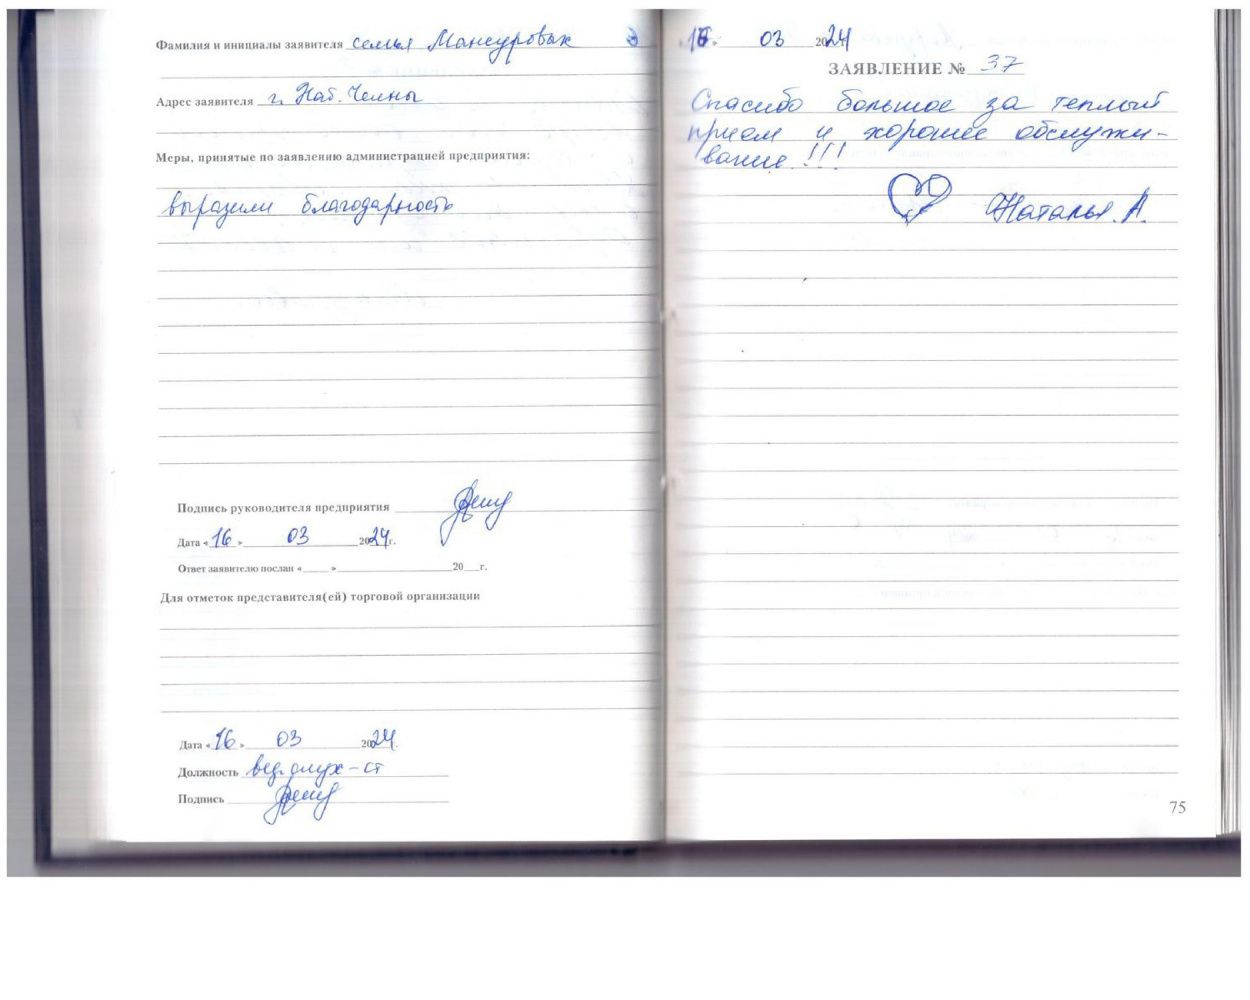 Фамилия и инициалы заявителя семья Мансуровых
Адрес заявителя г. Наб. Челны
Меры, принятые по заявлению администрацией предприятия:
выразили благодарность
Подпись руководителя предприятия
Дата « 16 » 03 2024 г.
Ответ заявителю послан « » 20 г.
Для отметок представителя(ей) торговой организации
Дата « 16 » 03 2024 г.
Должность
Подпись
16 » 03 2024
ЗАЯВЛЕНИЕ № 37
Спасибо большое за теплый
прием и хорошее обслужи-
вание !!!
Наталья. А.
75